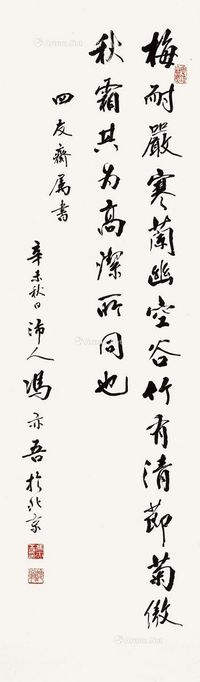 梅耐嚴寒蘭幽空谷竹有清節菊傲
秋霜其为高潔所同也
四友齋属書
辛未秋日沛人馮亦吾於北京